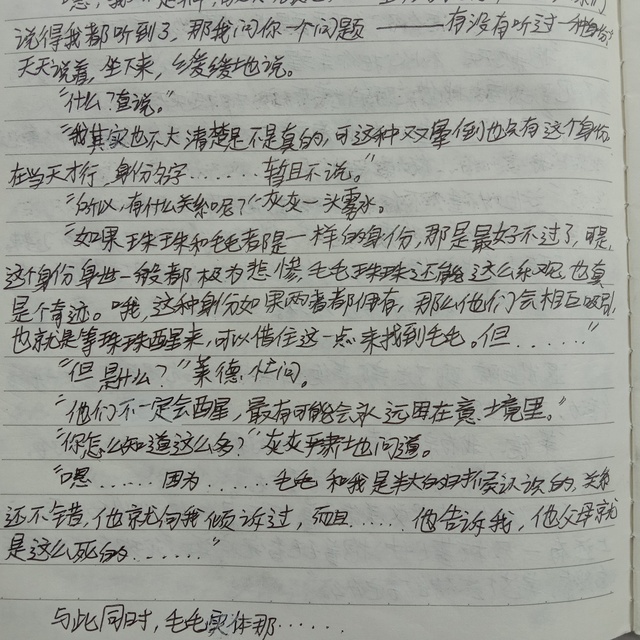 说得我都听到了，那我问你一个问题——有没有听过一种身份？”
天天说着，坐下来，缓缓地说。
“什么？直说。”
“我其实也不大清楚是不是真的，可这种双双晕倒也只有这个身份
在当天才行，身份名字……暂且不说。”
“所以，有什么关系呢？”灰灰一头雾水。
“如果珠珠和毛毛都是一样的身份，那是最好不过了，可是，
这个身份身世一般都极为悲惨，毛毛珠珠还能这么乐观，也真
是个奇迹。哦，这种身份如果两者都拥有，那么他们会相互吸引，
也就是等珠珠醒来，可以借住这一点来找到毛毛。但……”
“但是什么？”莱德忙问。
“他们不一定会醒，最有可能会永远困在意境里。”
“你怎么知道这么多？”灰灰严肃地问道。
“嗯……因为……毛毛和我是半大的时候认识的，关系
还不错，他就向我倾诉过，而且……他告诉我，他父母就
是这么死的……”
与此同时，毛毛实体那……